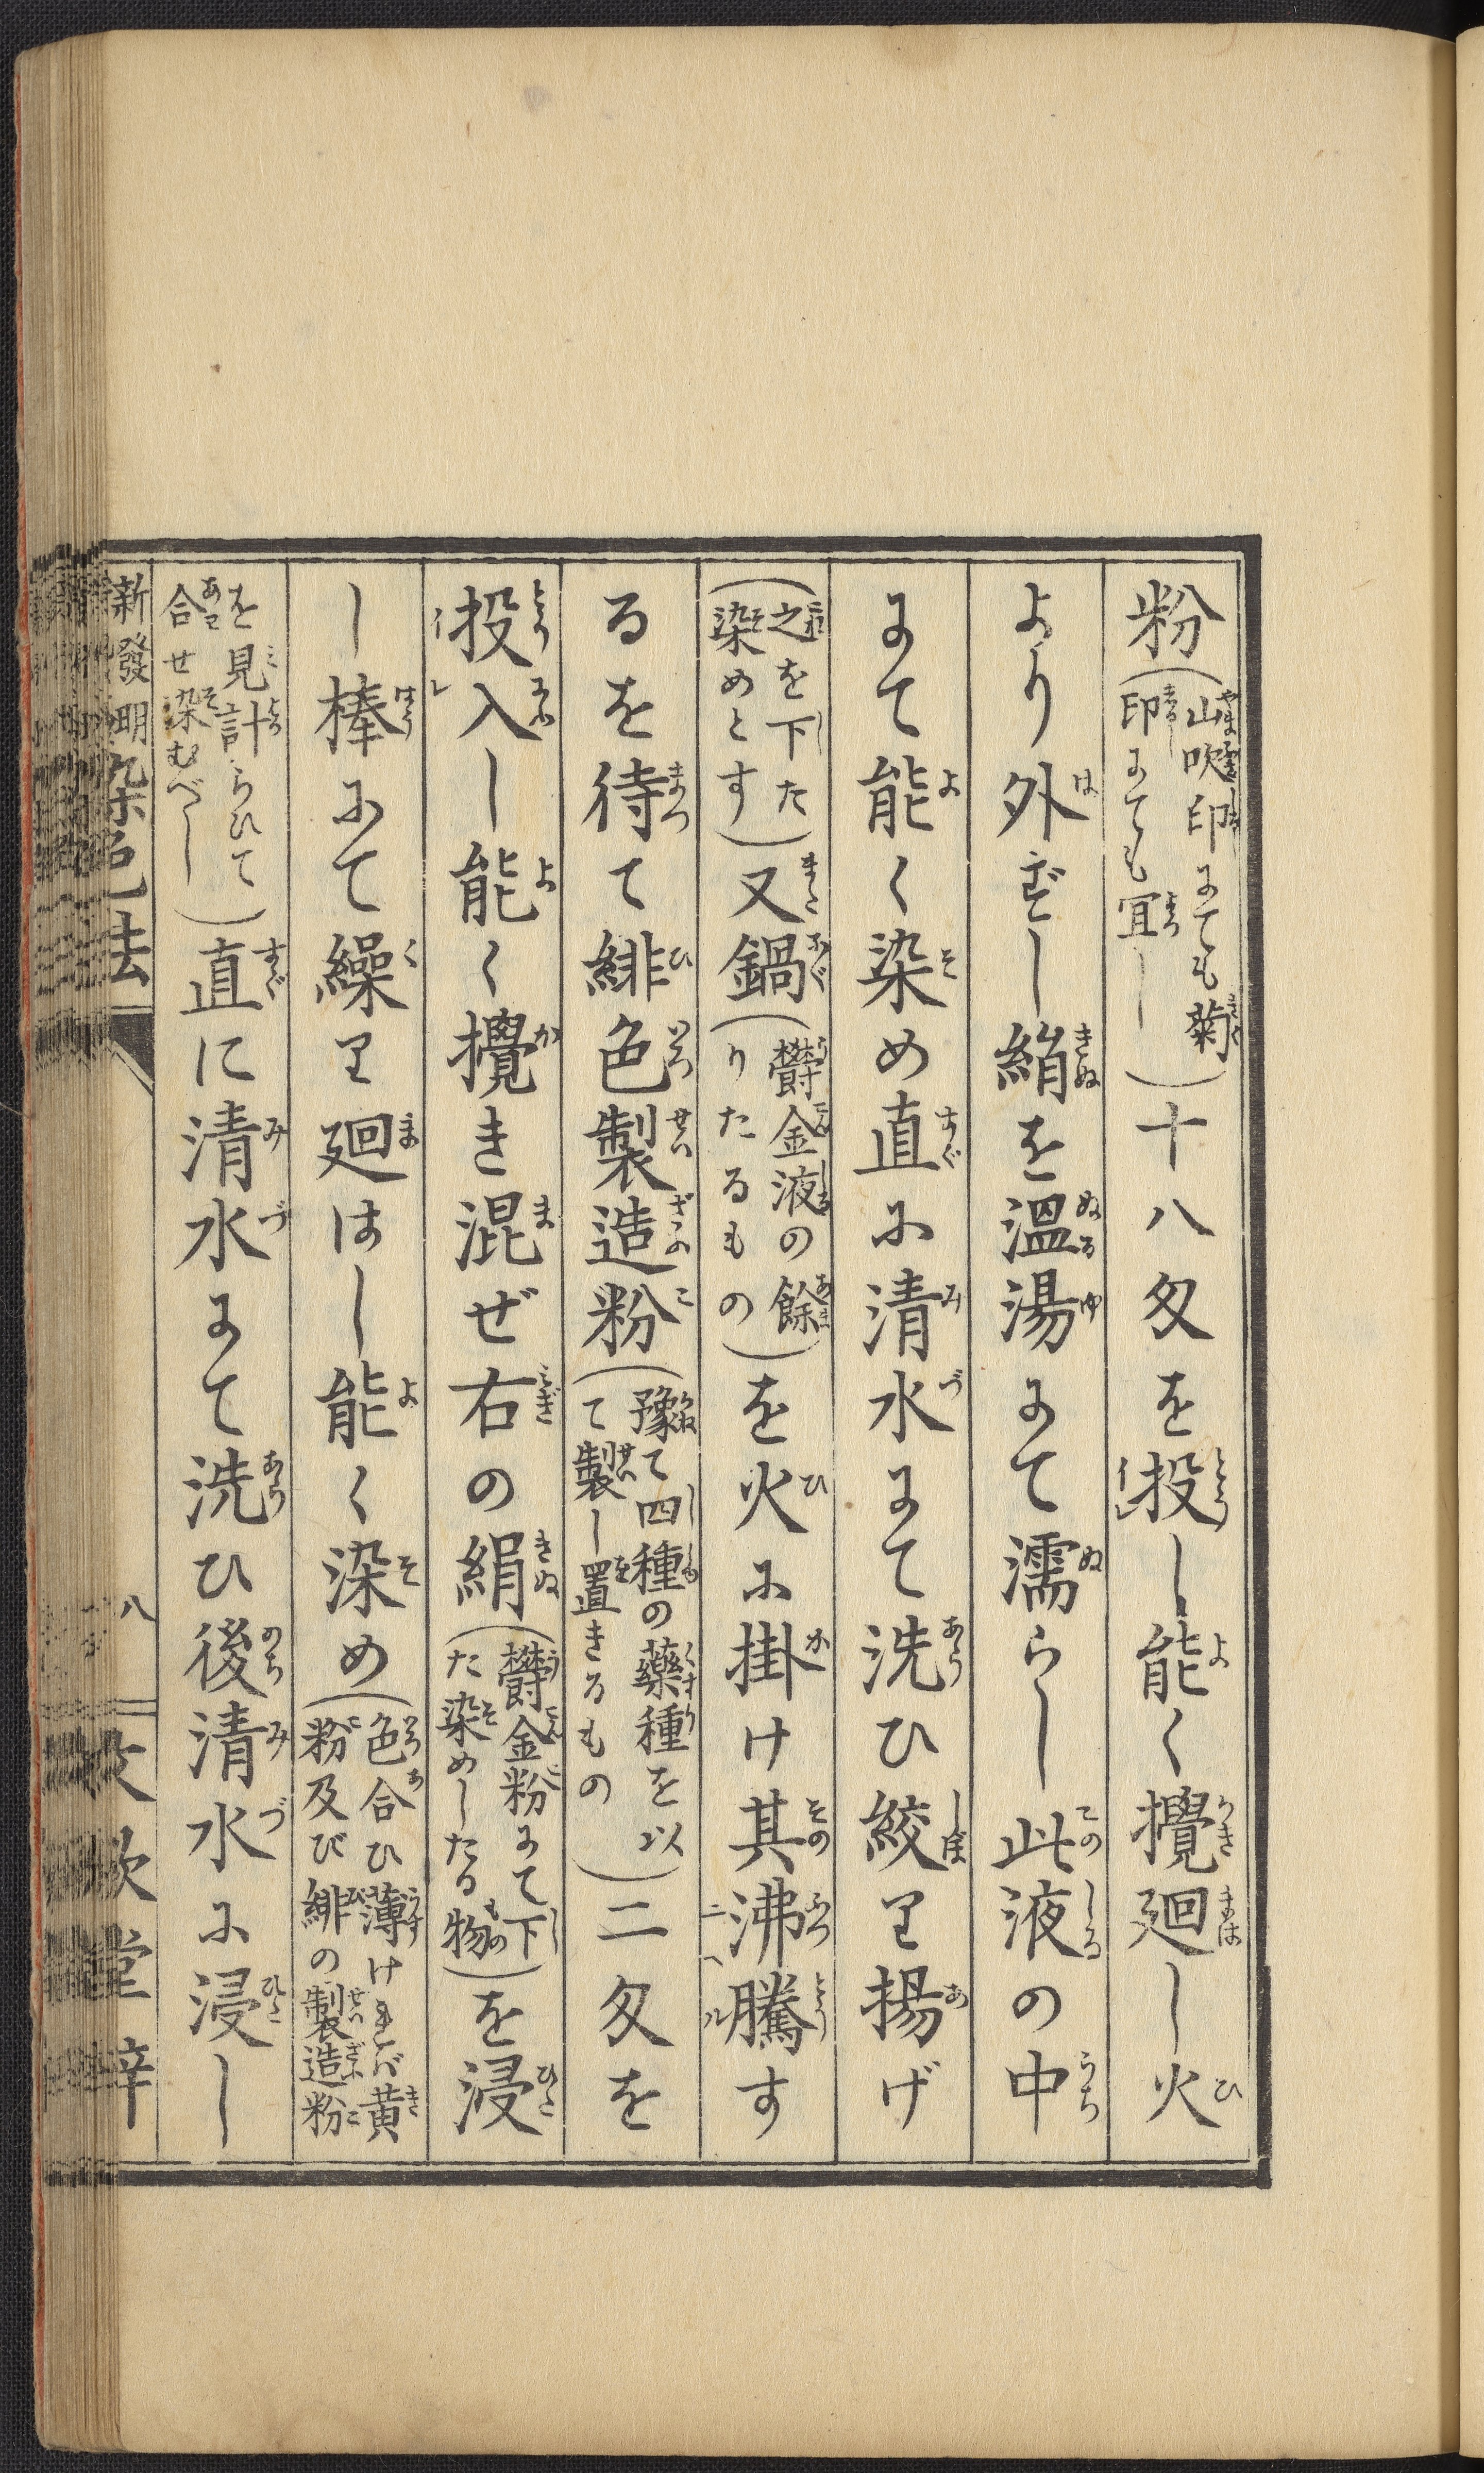 粉(山吹印にても菊印にても宜し)十八匁を投し能く攪廻し火
より外ずし絹を温湯にて濡らし此液の中
にて能く染め直に清水にて洗ひ絞り揚げ
(之を下た染めとす)又鍋(欝金液の餘りたるもの)を火に掛け其沸騰す
るを待て緋色製造粉(豫て四種の藥種を以て製し置きるもの)二匁を
投入し能く攪き混ぜ右の絹(欝金粉にて下た染めしたる物)を浸
し棒にて繰り廻はし能く染め(色合ひ薄ければ黄粉及び緋の製造粉
を見計らひて合せ染むべし)直に清水にて洗ひ後清水に浸し
新發明染色法
八